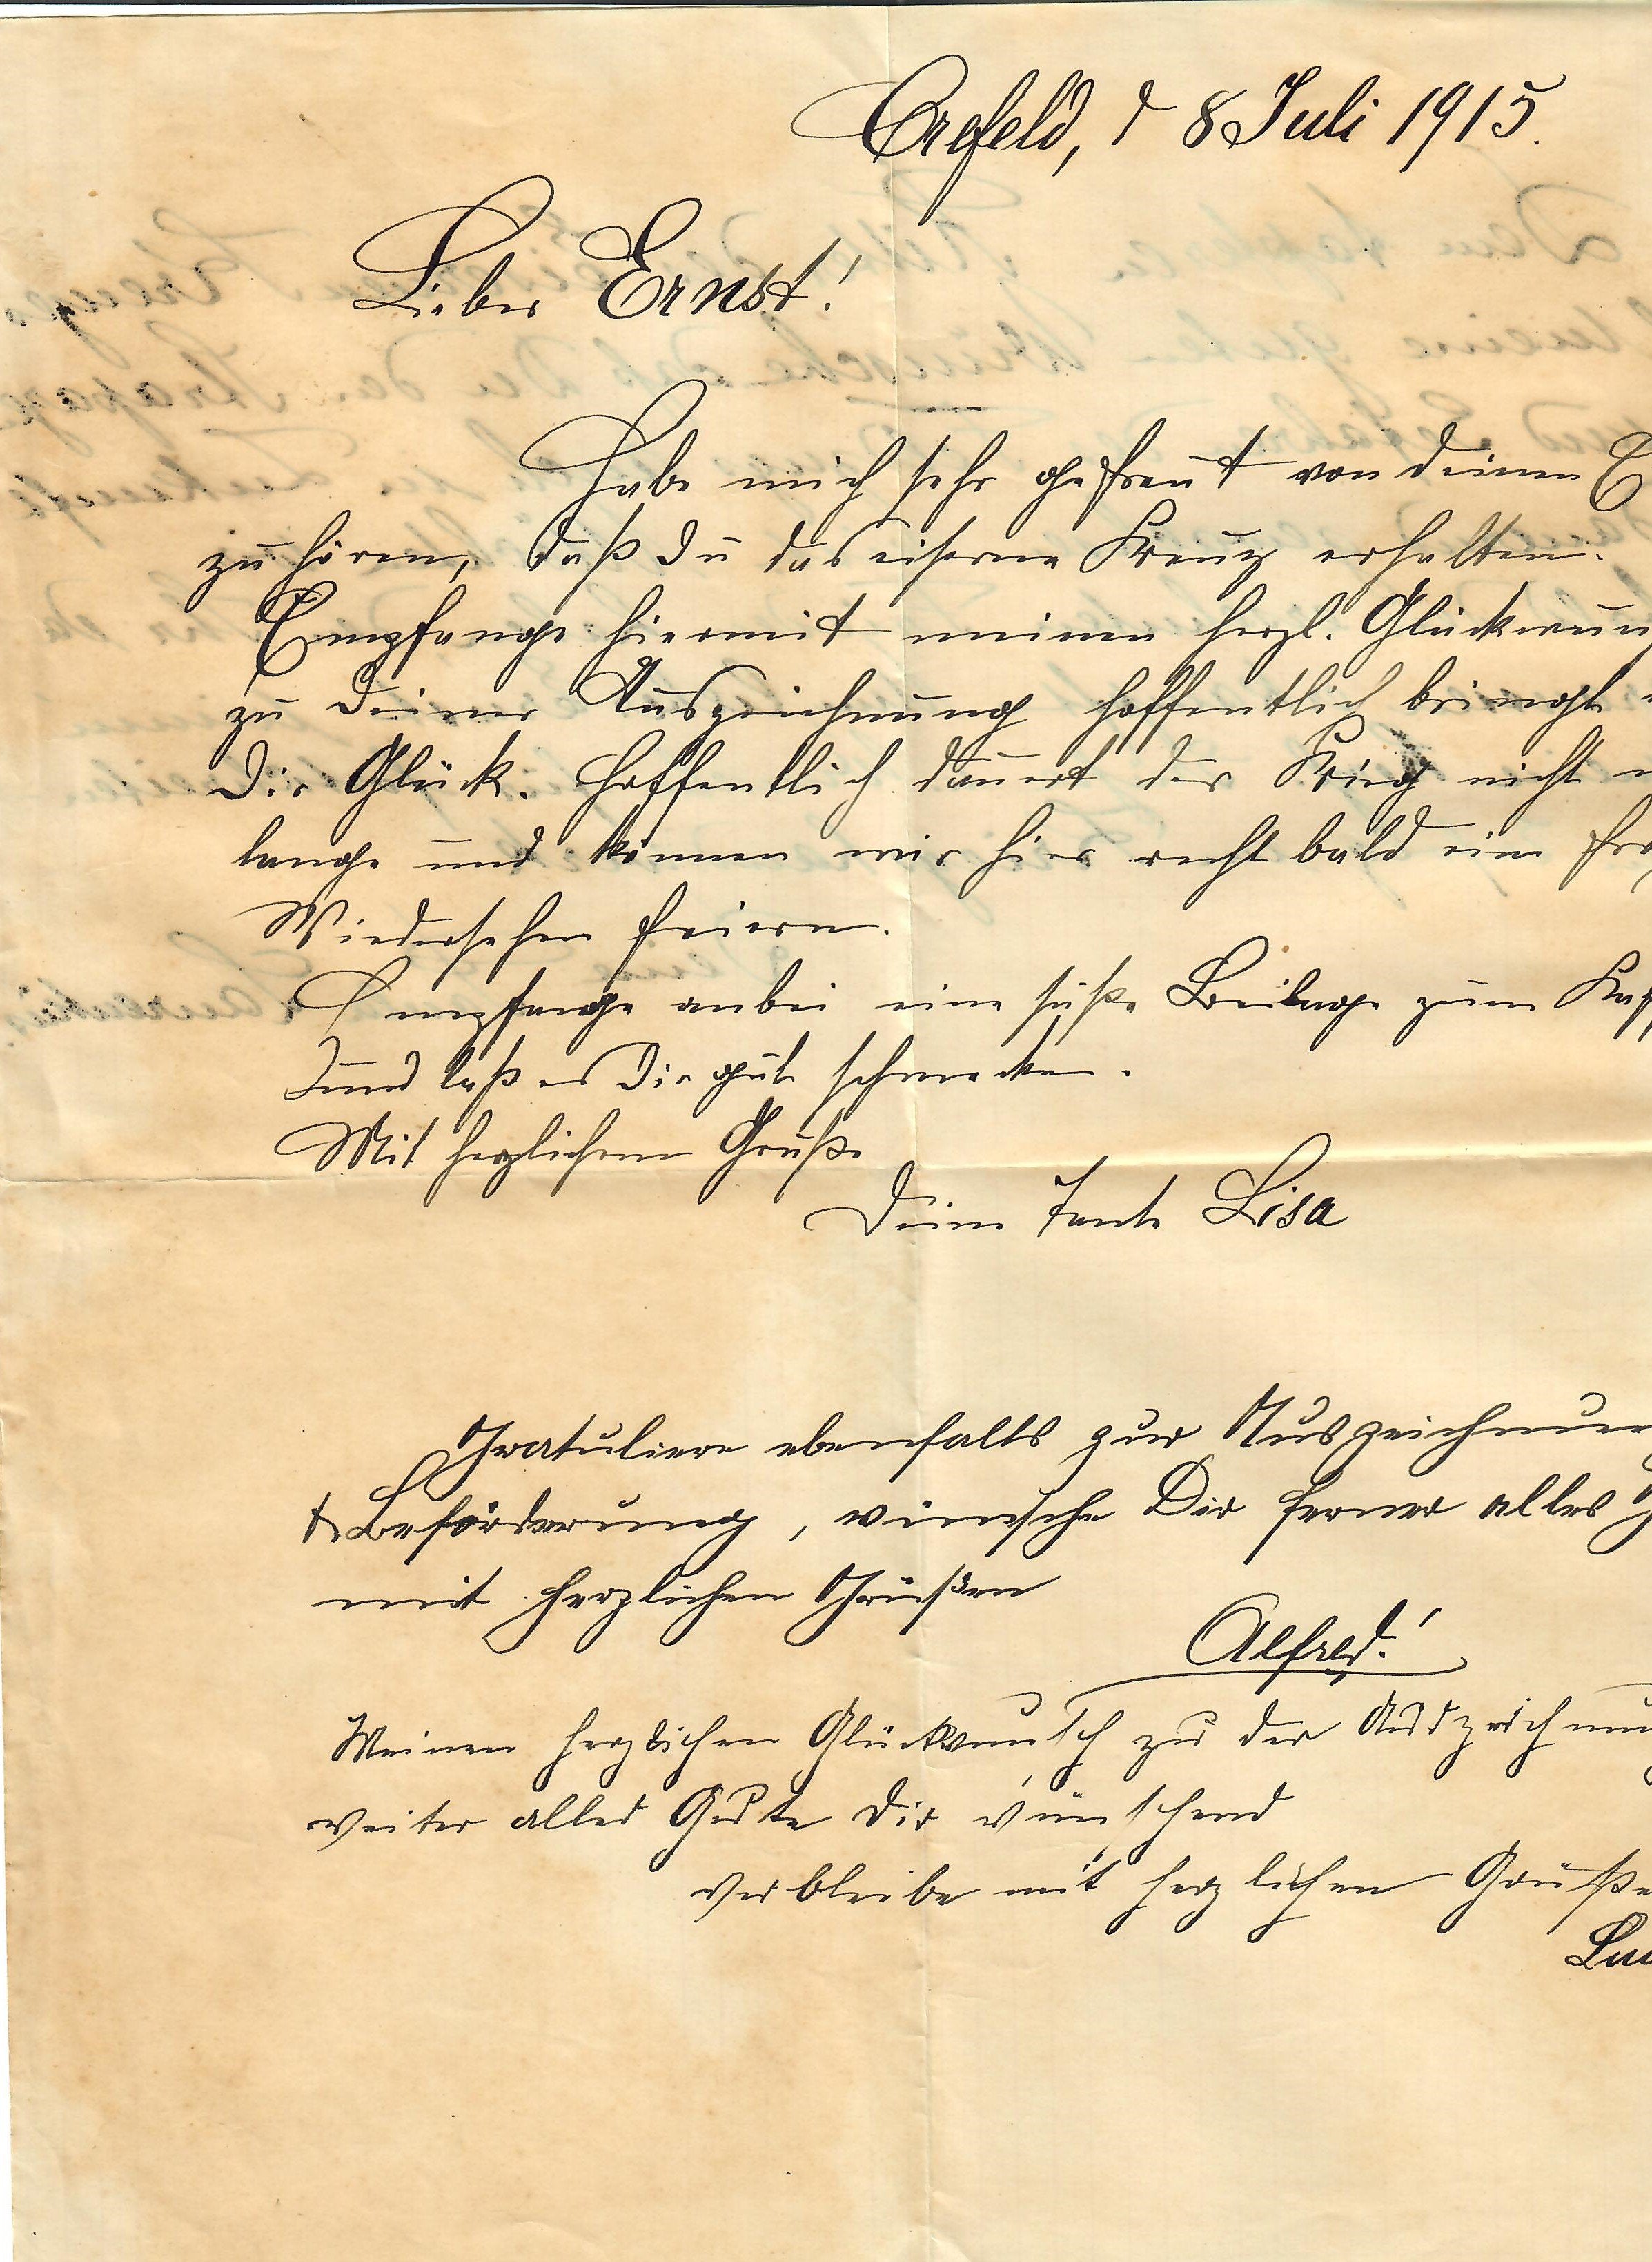 Crefeld, d 8 Juli 1915.
Lieber Ernst!
Habe mich sehr gefreut von deinen E
zu hören, daß Du das eiserne Kreuz erhalten.
Empfange hiermit meinen herzl. Glückwun
zu Deiner Auszeichnung hoffentlich bringt
Dir Glück. Hoffentlich dauert der Krieg nicht
lange und können wir hier recht bald ein fro
Wiedersehen feiern.
Empfange anbei eine süße Beilage zum Kaf
und laß es Dir gut schmecken.
Mit herzlichem Gruße
Deine Tante Lisa
Gratuliere ebenfalls zur Auszeichnun
& Beförderung, wünsche Dir ferner alles G
mit herzlichen Grüßen
Alfred!
Meinen herzlichen Glückwunsch zu der Auszeichnung
weiter alles Gute Dir wünschend
verbleibe mit herzlichen Grüße